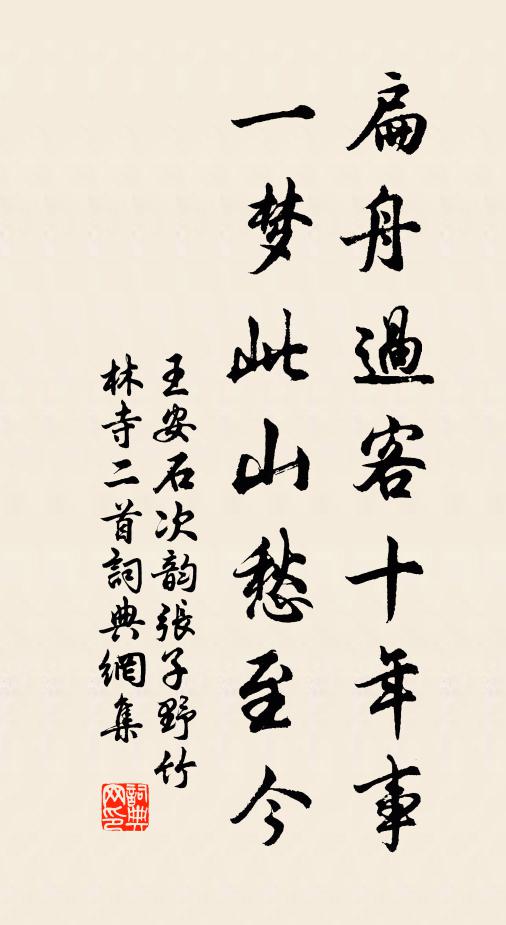 扁舟過客十年事
一梦此山愁至今
王安石次韵張子野竹
林寺二首詞典網集
詞典网印